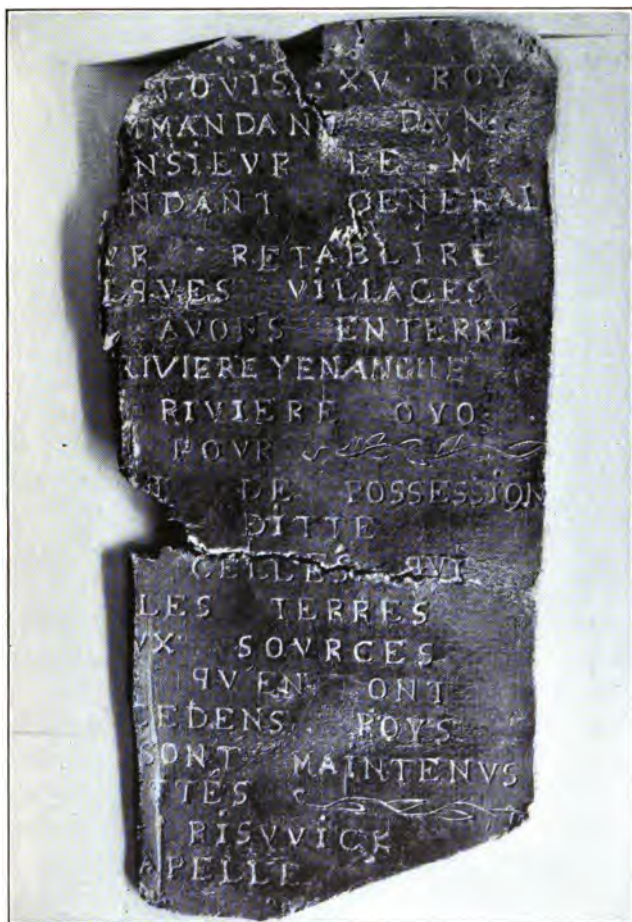 LOVIS · XV · ROY
MANDANT DVN
NSIEVR LE M
NDANT GENERAL
VR RETABLIRE
LQVES VILLAGES
AVONS ENTERRE
RIVIERE YENANGUE
RIVIERE OYO
POVR
DE POSSESSION
DITTE
CELLES QVI
LES TERRES
VX SOVRCES
QVEN ONT
CEDENS ROYS
SONT MAINTENVS
TTÉS
RISVVICK
APELLE